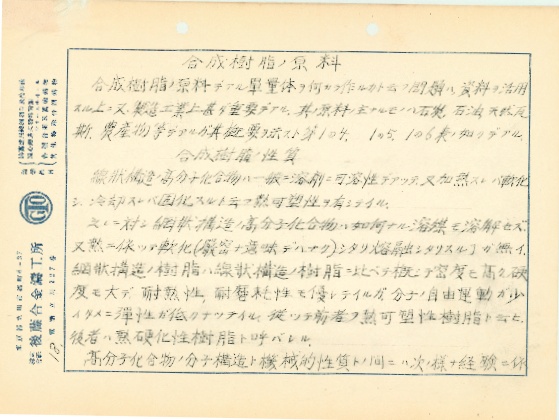 合成樹脂ノ原料
合成樹脂ノ原料デアル單量体ヲ何カラ作ルカト云フ問題ハ資料ヲ活用
スル上ニ又製造工業上甚ダ重要デアル。其ノ原料ノ主ナルモノハ石炭、石油、天然瓦
斯、農産物等デアルガ其概要ヲ示スト第104、105、106表ノ如クデアル。
合成樹脂ノ性質
線状構造ノ高分子化合物ハ一般ニ溶剤ニ可溶性デアッテ、又加熱スレバ軟化
シ、冷却スレバ固化スルト云フ熱可塑性ヲ有シテイル。
之レニ対シ網状構造ノ高分子化合物ハ如何ナル溶媒ニモ溶解セズ、
又熱ニ依ッテ軟化(嚴密ナ意味デハナク)シタリ溶融シタリスル了ガ無イ。
網状構造ノ樹脂ハ線状構造ノ樹脂ニ比ベテ概シテ密度モ高ク、硬
度モ大デ、耐熱性、耐磨耗性モ優レテイルガ分子ノ自由運動ガ少
イタメニ彈性ガ低クナッテイル。從ッテ前者ヲ熱可塑性樹脂ト云ヒ、
後者ハ熱硬化性樹脂ト呼バレル。
高分子化合物ノ分子構造ト機械的性質トノ間ニハ次ノ様ナ経験ニ依
GTO
後藤合金鑄工所
18